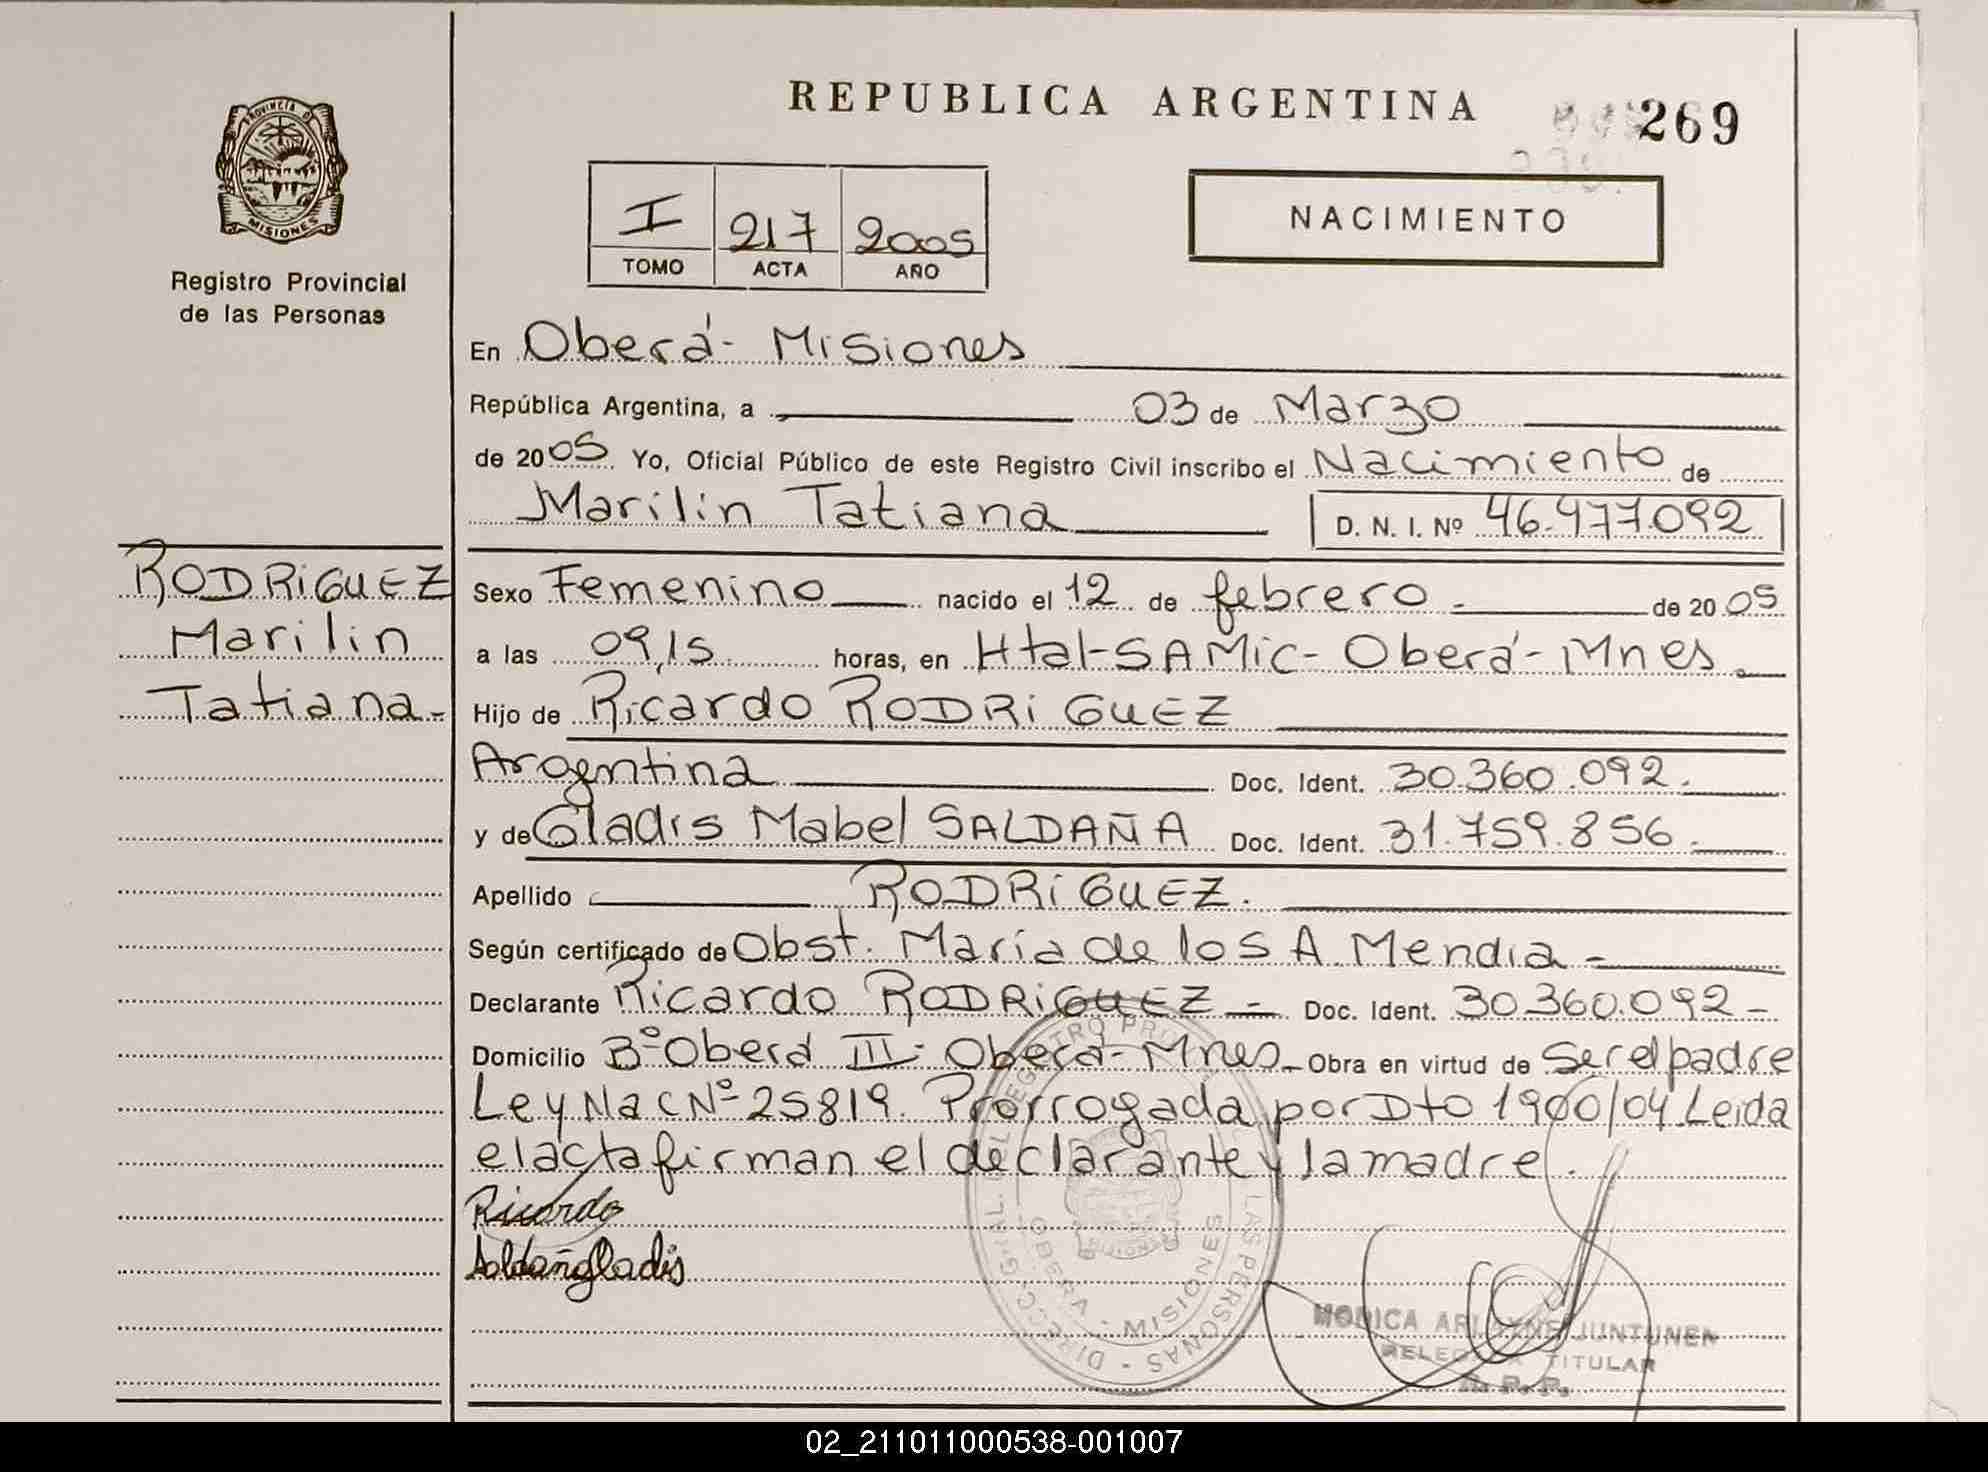 REPUBLICA ARGENTINA
269
PROVINCIA D
MISIONES
Registro Provincial
de las Personas
I 217 2005
TOMO ACTA AÑO
NACIMIENTO
En Oberá - Misiones
República Argentina, a 03 de Marzo
de 2005 Yo, Oficial Público de este Registro Civil inscribo el Nacimiento de
Marilin Tatiana D. N. I. Nº 46.477.092
RODRIGUEZ
Marilin
Tatiana-
Sexo Femenino nacido el 12 de febrero - de 2005
a las 09,15 horas, en Htal-SAMIC- Oberá- Mnes.
Hijo de Ricardo RODRIGUEZ
Argentina Doc. Ident. 30.360.092.
y de Gladis Mabel SALDAÑA Doc. Ident. 31.759.856.
Apellido RODRIGUEZ.
Según certificado de Obst. María de los A. Mendia -
Declarante Ricardo RODRIGUEZ - Doc. Ident. 30.360.092-
Domicilio Bº Oberá III- Oberá- Mnes- Obra en virtud de Ser el padre
Ley Nac Nº 25819. Prorrogada por Dto 1900/04. Leida
el acta firman el declarante y la madre.
Ricardo
Saldañ Gladis
LAS PERSONAS - DIRECC. GRAL. DEL REGISTRO
OBERA - MISIONES
MONICA JUNTUNEN
TITULAR
R. P. P.
02_211011000538-001007